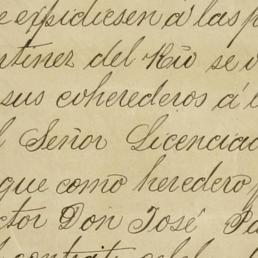 e expidiesen á las p
tinez del Rio se v
sus coherederos á l
l Señor Licenciad
que como heredero,
ctor Don José Pa